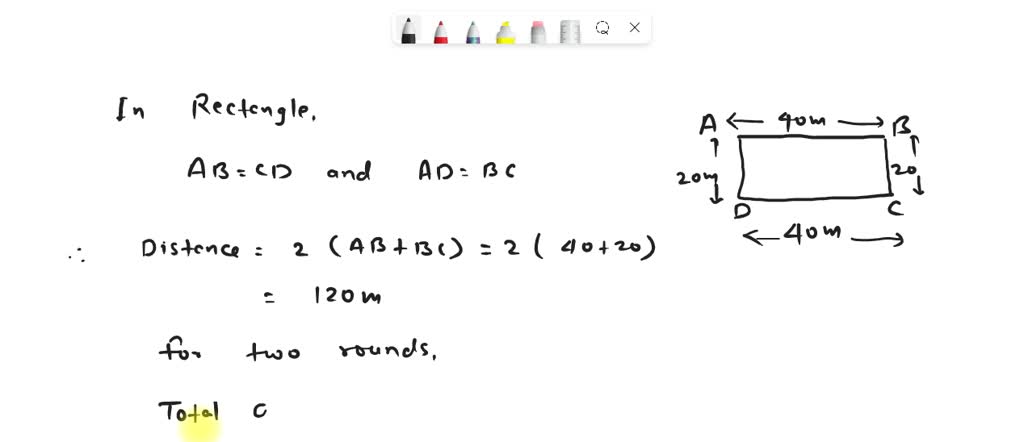 In Rectangle,
A ← 40m → B
AB = CD and AD = BC
20m
20
D
C
← 40m →
∴ Distance = 2 (AB + BC) = 2 ( 40+20)
= 120m
for two rounds,
Total